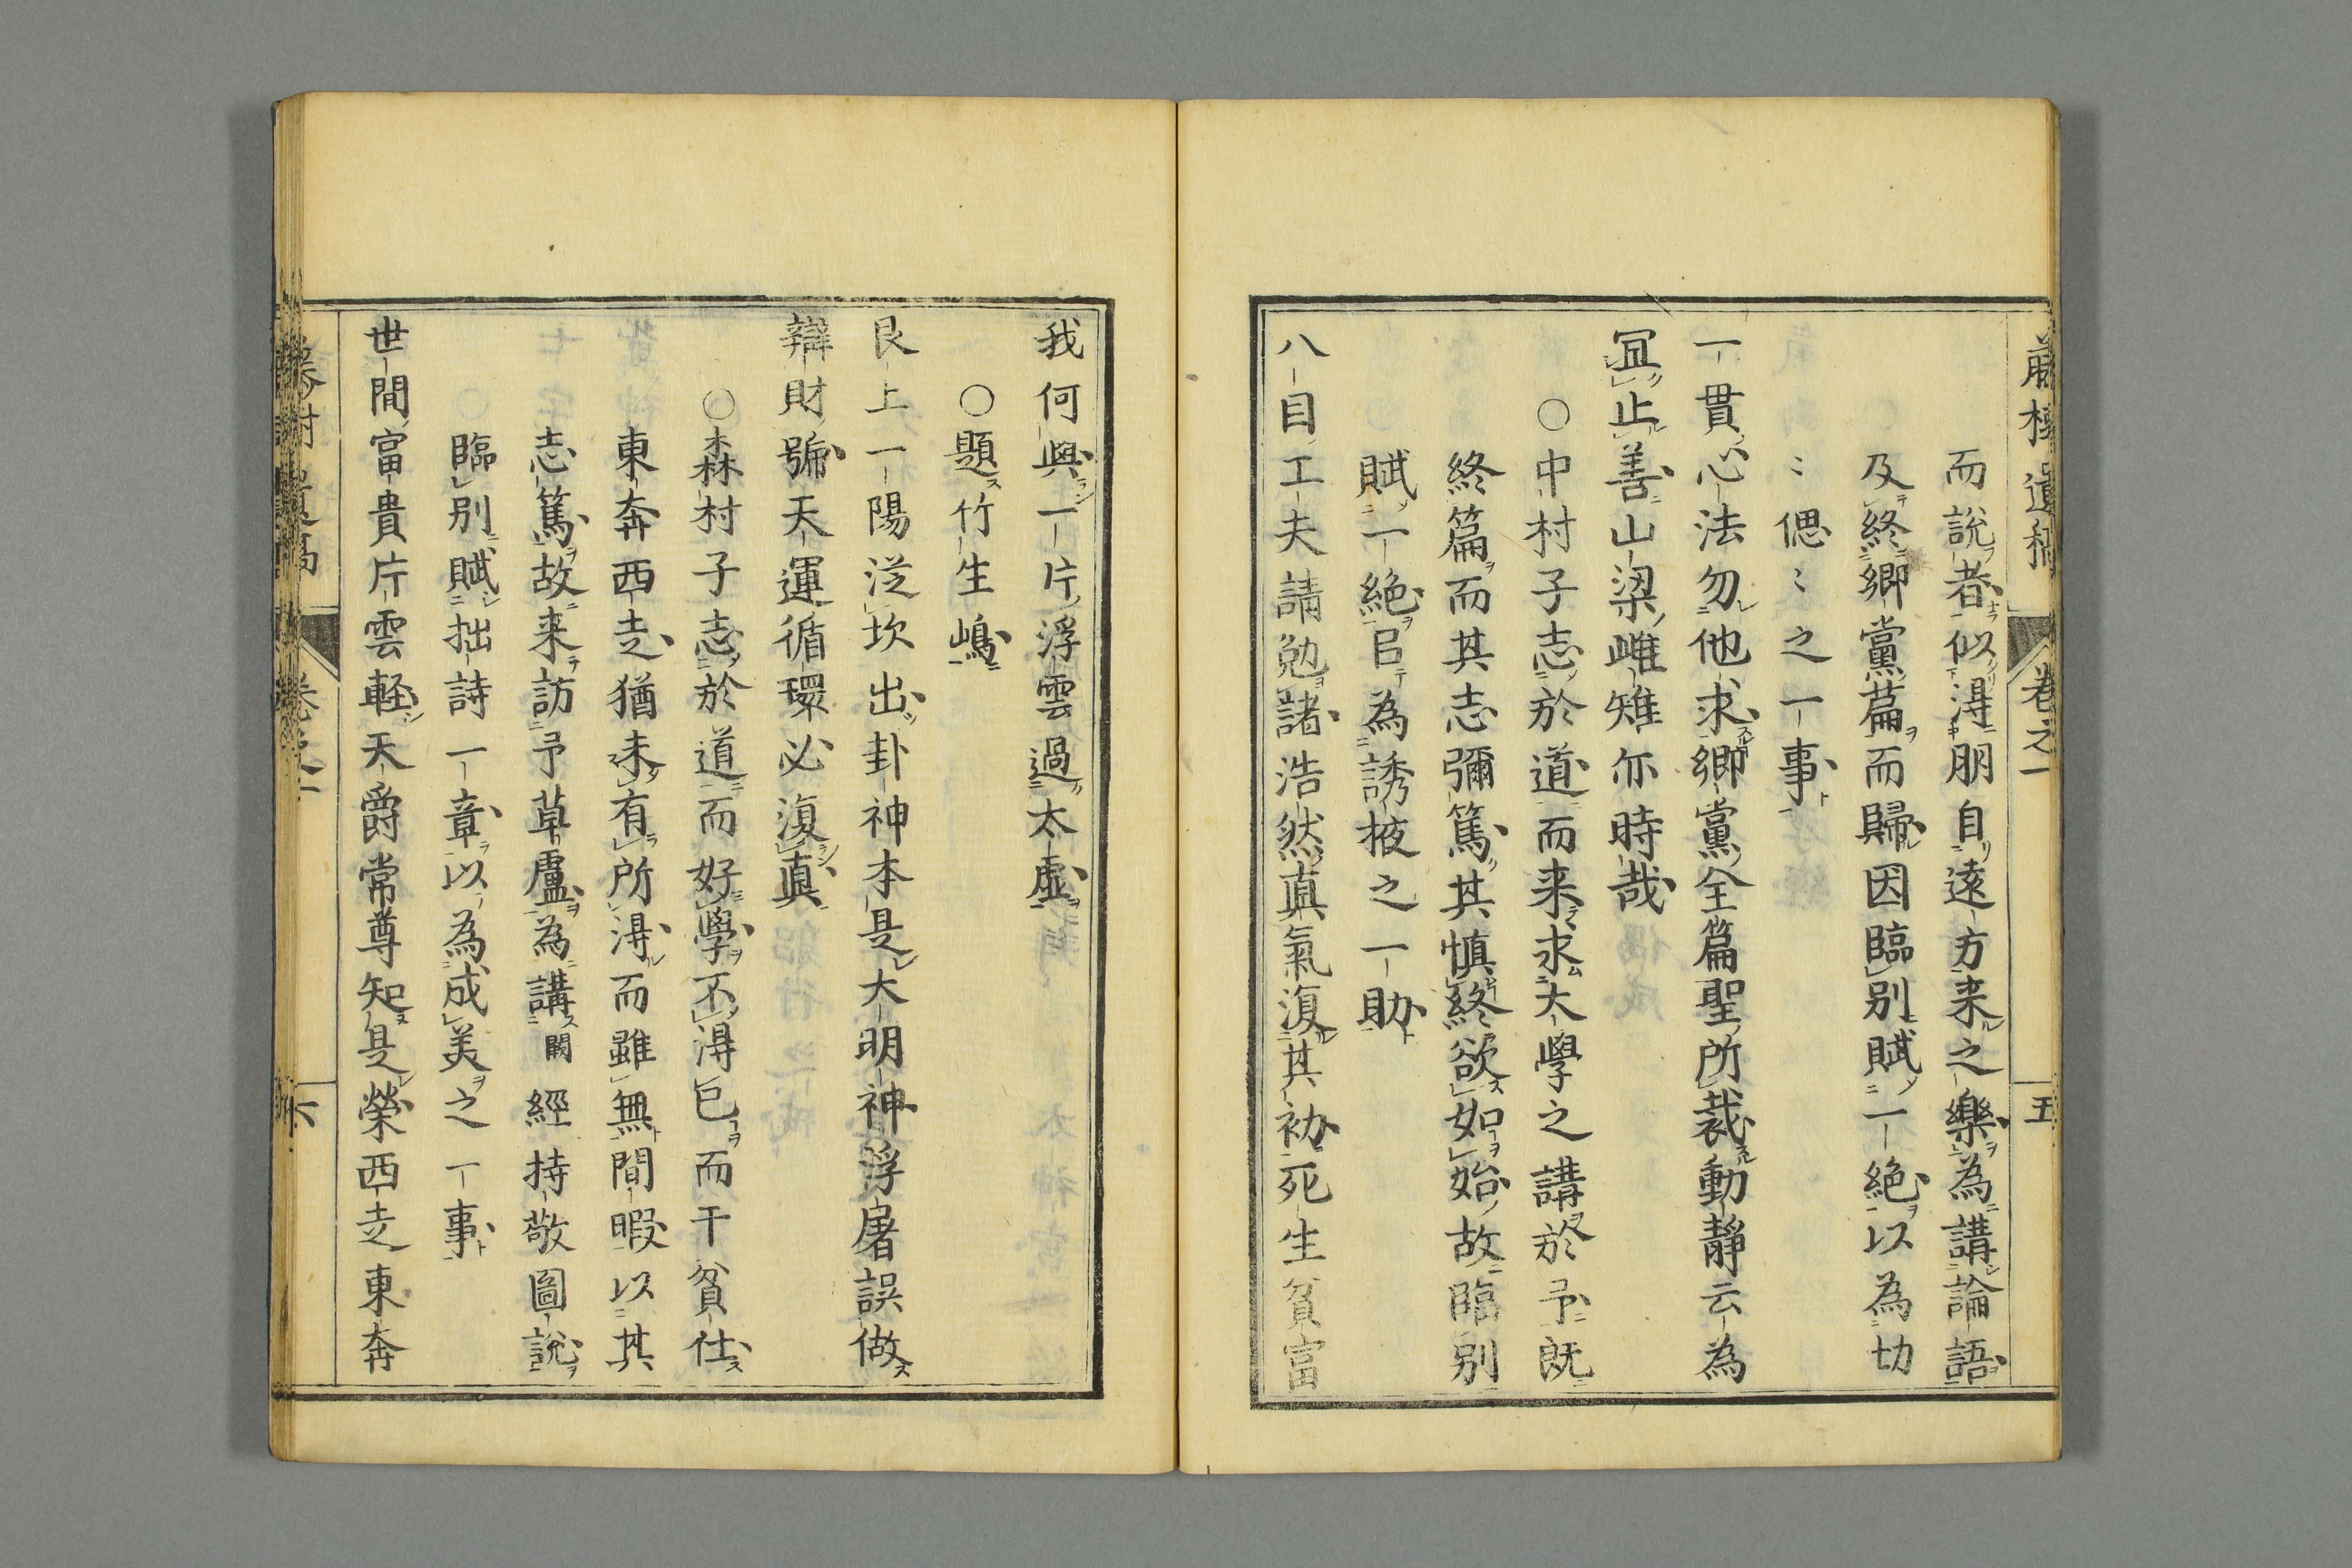 藤樹遺稿 卷之一 五
而説者似得朋自遠方来之樂為講論語
及終郷黨篇而歸因臨別賦一絶以為切
〻偲〻之一事
一貫心法勿他求郷黨全篇聖所裁動静云為
冝止善山梁雌雉亦時哉
○中村子志於道而来求大學之講於予既
終篇而其志彌篤其慎終欲如始故臨別
賦一絶㠯為誘掖之一助
八目工夫請勉諸浩然真氣復其初死生貧富
我何與一片浮雲過太虚
○題竹生嶋
艮上一陽従坎出卦神本是大明神浮屠誤做
辯財號天運循環必復真
○森村子志於道而好學不得已而干貧仕
東奔西走猶未有所得而雖無間暇以其
志篤故来訪予草廬為講闕經持敬圖説
臨別賦拙詩一章以為成美之一事
世間富貴片雲軽天爵常尊知是榮西走東奔
藤樹遺稿 卷之一 六